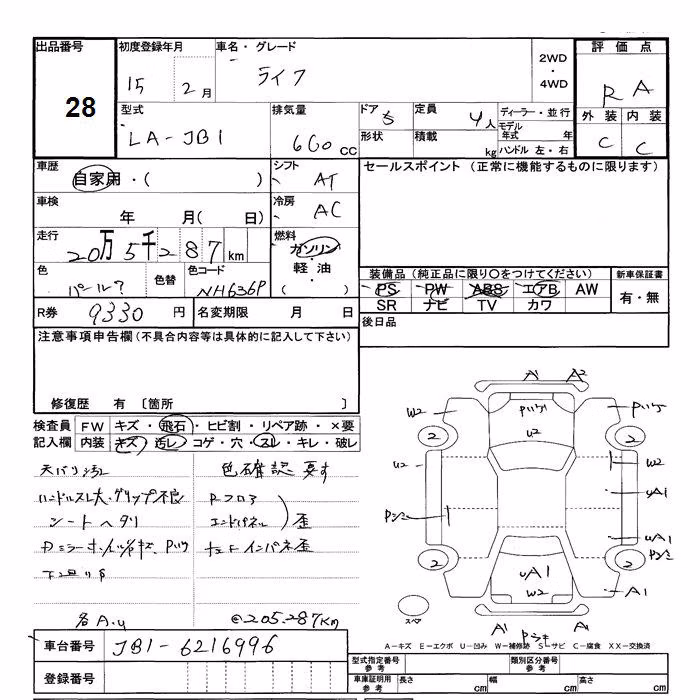 出品番号 初度登録年月 車名・グレード 評価点
28 15 2月 ライフ 2WD・4WD R A
外装 内装
C C
型式 排気量 ドア 定員 ディーラー・並行
LA-JB1 660cc 5 4人 モデル年式 年
形状 積載 kg ハンドル 左・右
車歴 シフト セールスポイント (正常に機能するものに限ります)
自家用・( ) AT
車検 冷房
年 月( 日) AC
走行 燃料
20万5千287km ガソリン・軽油・( )
色 色替 色コード
パール? NH636P
装備品 (純正品に限り○をつけてください) 新車保証書
PS PW ABS エアB AW 有・無
SR ナビ TV カワ
R券 9330円 名変期限 月 日
後日品
注意事項申告欄(不具合内容等は具体的に記入して下さい)
修復歴 有 〔箇所 〕
検査員 FW キズ・飛石・ヒビ割・リペア跡・×要
記入欄 内装 キズ・汚レ・コゲ・穴・スレ・キレ・破レ
天バリ 色確認要す
ハンドルスレ大・グリップ不良 Rフロア
シートヘタリ エンドパネル 歪
インパネ歪
@205.287km
車台番号 JB1-6216996
登録番号
A1 A2
W2 Pハゲ U2 Pハゲ
2 2
U2 W2
uA1
Pシミ
uA1
Pシミ
2 2
uA1
W2 A1
スペア
A1 A1
A-キズ E-エクボ U-凹み W-補修跡 S-サビ C-腐食 XX-交換済
型式指定番号 参考 類別区分番号 参考
車庫証明用 参考 長さ cm 幅 cm 高さ cm